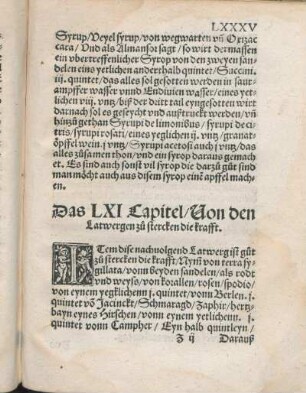 LXXXV
Syrup/Veyel syrup/von wegwarten vñ Oxizac
cara/Vnd als Almansor sagt/so wirt dermassen
ein vbertreffenlicher Syrop von den zweyen san
delen eins yetlichen anderthalb quintet/Succini.
iij. quintet/das alles sol gesotten werden in saur
ampffer wasser vnnd Endiuien wasser/eines yet
lichen viij. vntz/biß der dritt tail eyngesotten wirt
darnach sol es geseycht vnd außtruckt werden/vñ
hinzů gethan Syrupi de limonibus/syrupi de ci
tris/syrupi rosati/eines yeglichen ij. vntz/granat
öpffel wein j vntz/Syrupi acetosi auch j vntz/das
alles zůsamen thon/vnd ein syrop daraus gemach
et. Es sind auch sonst vil syrop die darzů gůt sind
man möcht auch aus disem syrop einē apffel mach
en.
Das LXI Capitel/Von den
Latwergen zů stercken die krafft.
ITem dise nachuolgend Latwerg ist gůt
zů stercken die krafft/Nym von terra sy
gillata/vonn beyden sandelen/als rodt
vnd weyss/von korallen/rosen/spodio/
von eynem yegklichenn j. quintet/vonn Berlen. j.
quintet võ Jacinckt/Schmaragd/Zaphir/hertz
bayn eynes Hirschen/vonn eynem yetlichenn. j.
quintet vonn Campher/Eyn halb quintleyn/
Z ij Darauß